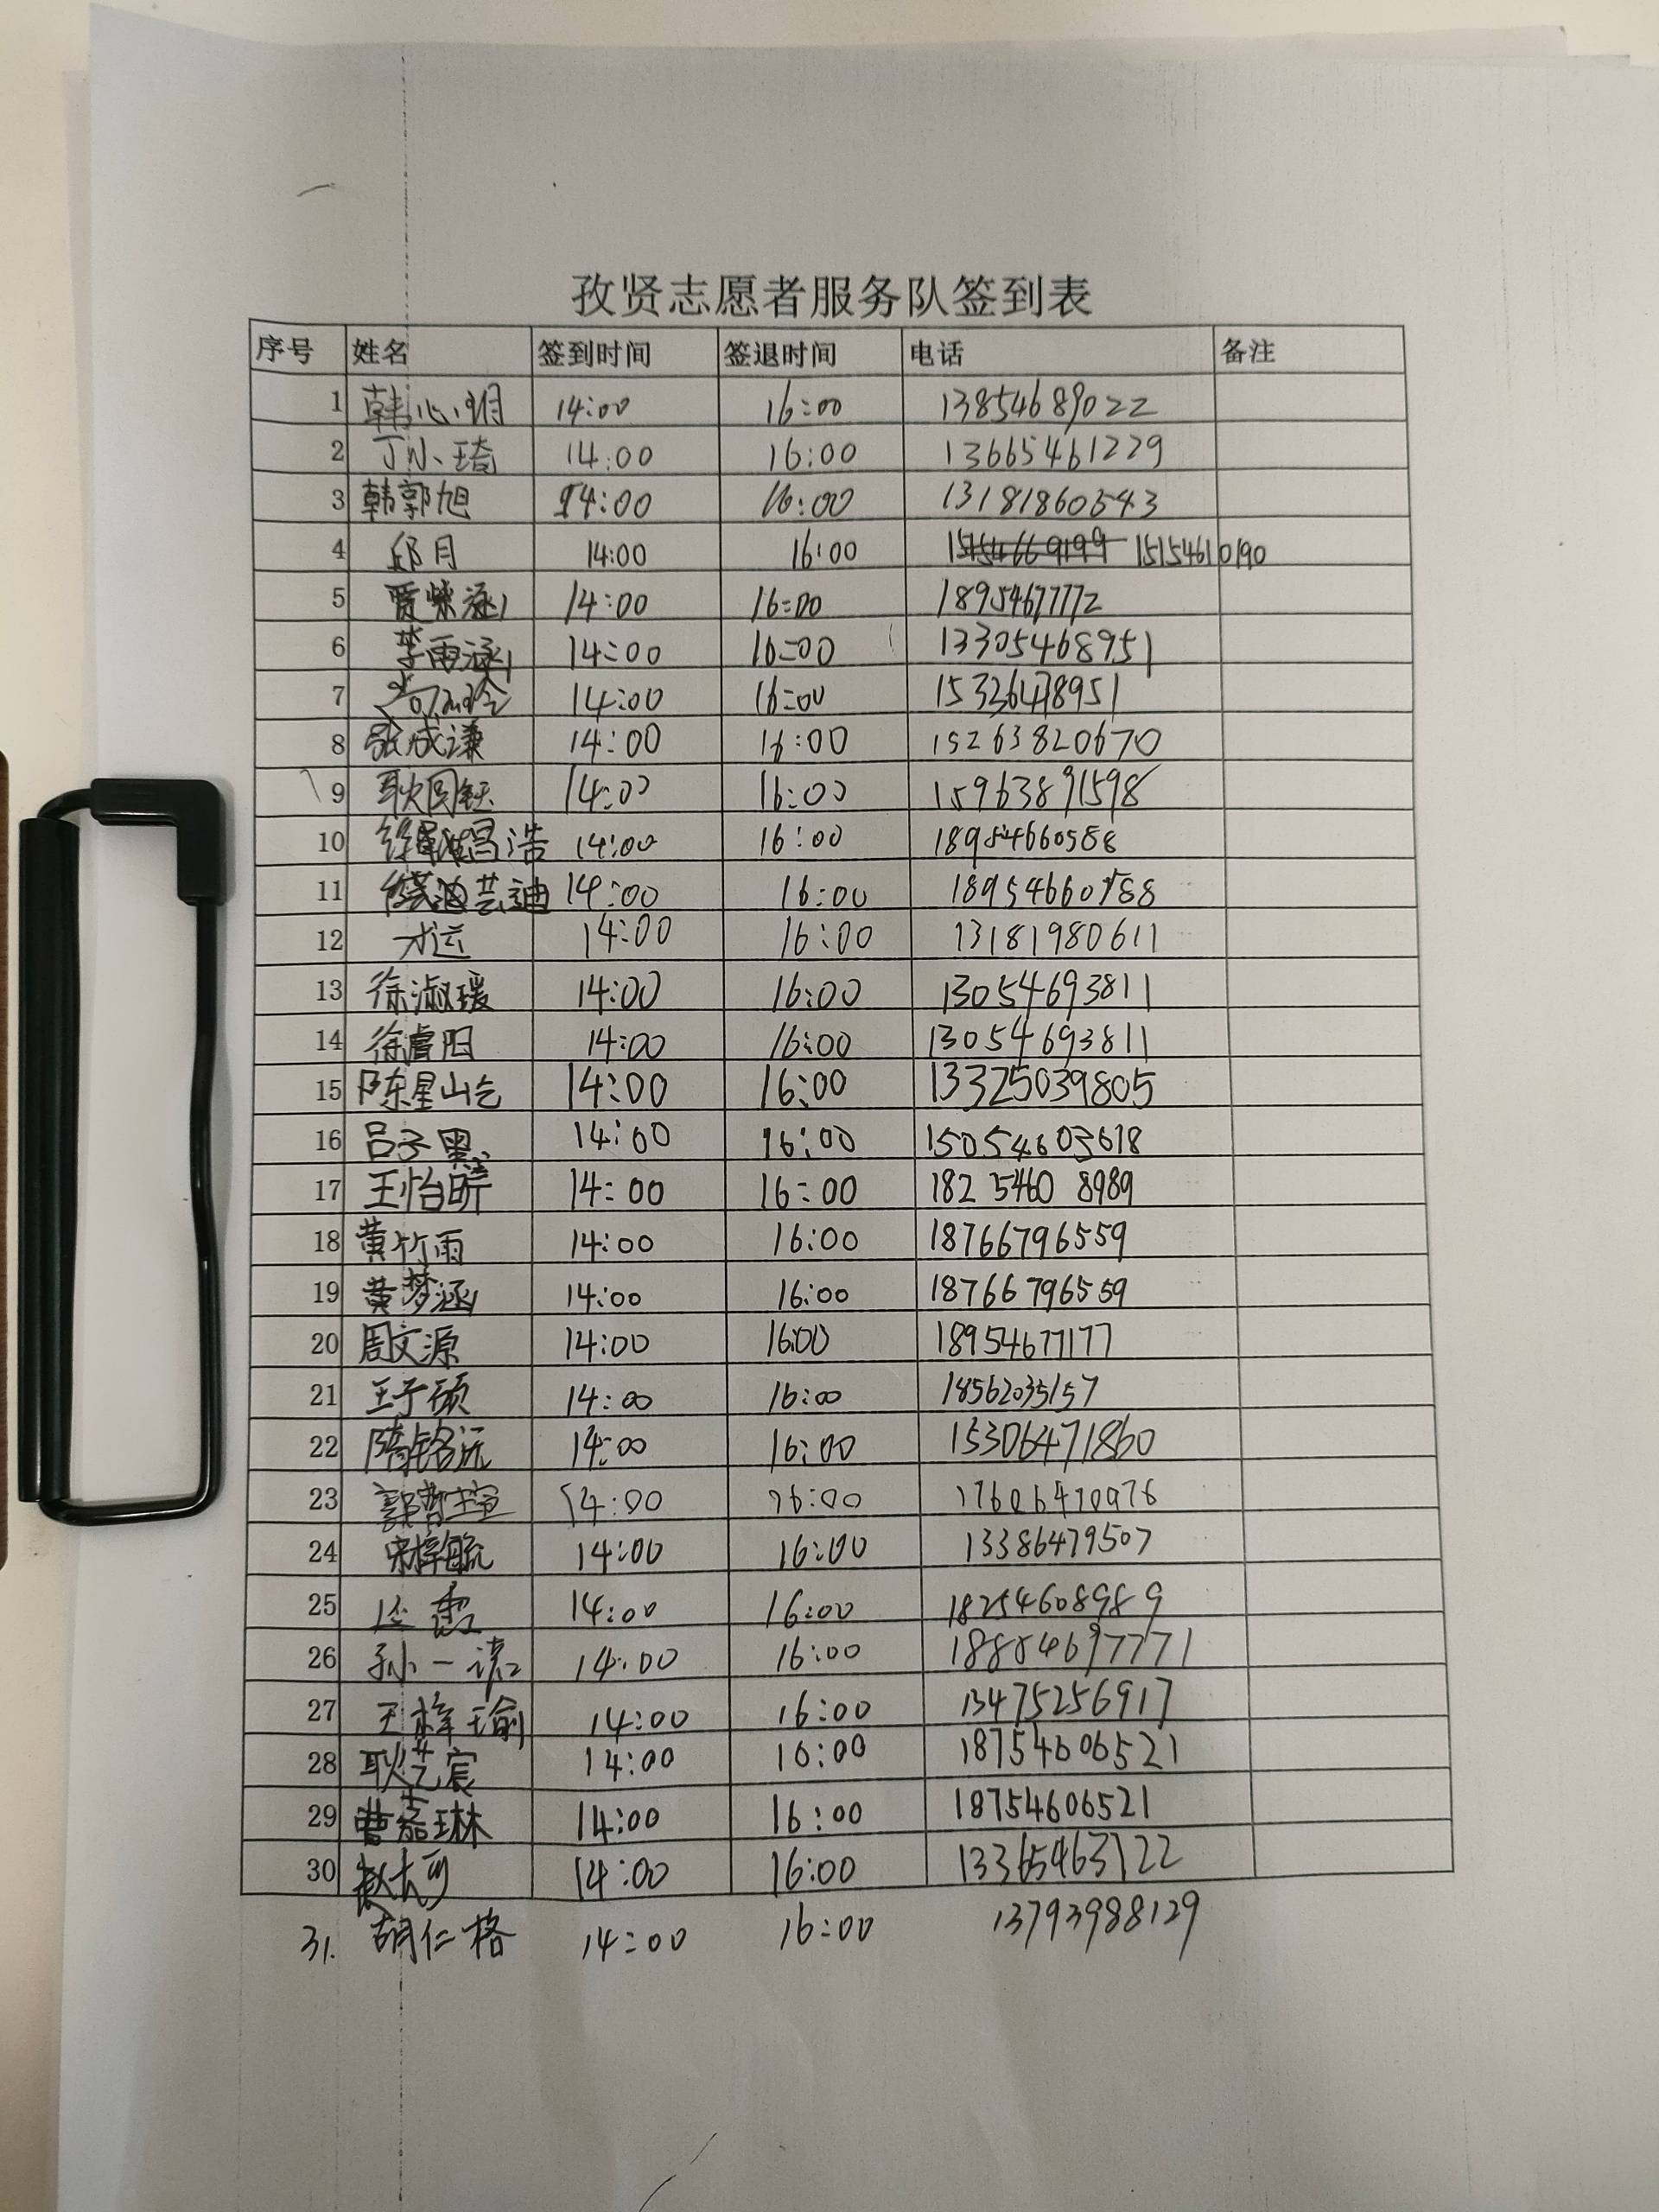 孜贤志愿者服务队签到表
序号 姓名 签到时间 签退时间 电话 备注
1 韩心明 14:00 16:00 13854689022
2 丁小琦 14:00 16:00 13665461229
3 韩郭旭 14:00 16:00 13181860543
4 邱月 14:00 16:00 15154610190
5 贾紫涵 14:00 16:00 18954677772
6 李雨涵 14:00 16:00 13305468951
7 14:00 16:00 15326478951
8 张成谦 14:00 16:00 15263820670
9 耿圆钰 14:00 16:00 15963891598
10 徐昌浩 14:00 16:00 18954660588
11 徐芸迪 14:00 16:00 18954660588
12 14:00 16:00 13181980611
13 徐淑瑗 14:00 16:00 13054693811
14 徐睿阳 14:00 16:00 13054693811
15 陈星屹 14:00 16:00 13325039805
16 吕子墨 14:00 16:00 15054603618
17 王怡晴 14:00 16:00 182 5460 8989
18 黄竹雨 14:00 16:00 18766796559
19 黄梦涵 14:00 16:00 18766796559
20 周文源 14:00 16:00 18954677177
21 王子硕 14:00 16:00 18562035157
22 隋铭沅 14:00 16:00 15306471860
23 郭哲瑄 14:00 16:00 17606470976
24 宋梓毓 14:00 16:00 13386479507
25 14:00 16:00 18254608989
26 孙一诺 14:00 16:00 18854697771
27 王梓瑜 14:00 16:00 13475256917
28 耿艺宸 14:00 16:00 18754606521
29 曹嘉琳 14:00 16:00 18754606521
30 赵大可 14:00 16:00 13365463722
31. 胡仁格 14:00 16:00 13793988129